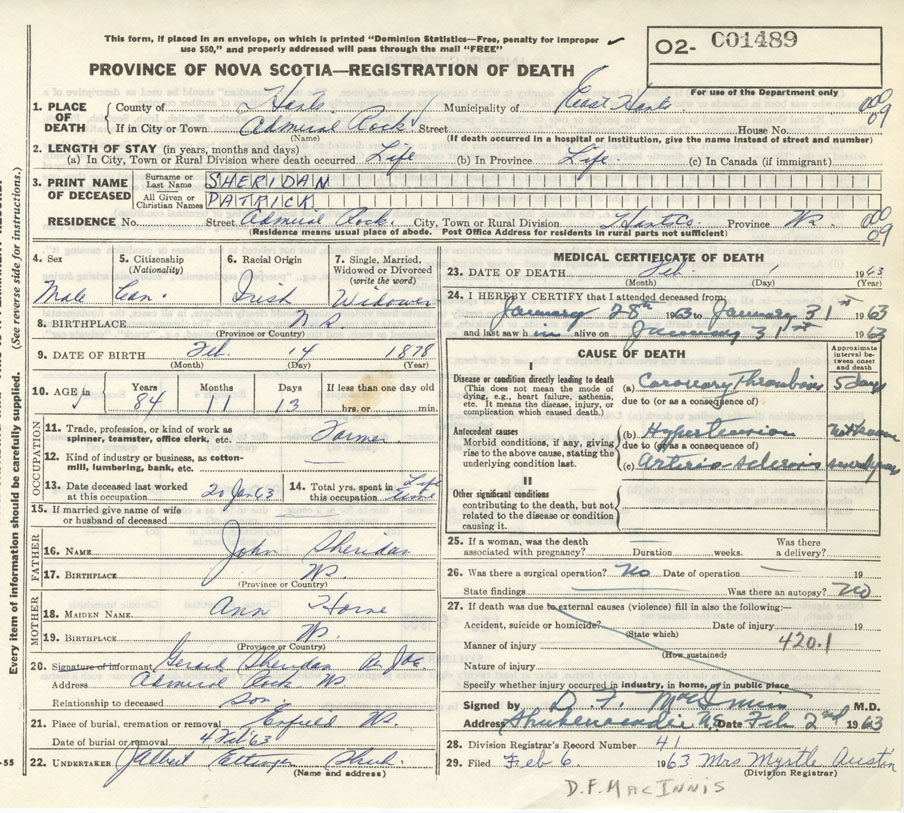 This form, if placed in an envelope, on which is printed "Dominion Statistics—Free, penalty for improper
use $50," and properly addressed will pass through the mail "FREE"
O2- C01489
PROVINCE OF NOVA SCOTIA—REGISTRATION OF DEATH
For use of the Department only
1. PLACE OF DEATH County of Hants Municipality of East Hants 000
If in City or Town Admiral Rock Street House No. 09
(Name) (If death occurred in a hospital or institution, give the name instead of street and number)
2. LENGTH OF STAY (in years, months and days)
(a) In City, Town or Rural Division where death occurred Life (b) In Province Life. (c) In Canada (if immigrant)
3. PRINT NAME OF DECEASED Surname or Last Name SHERIDAN
All Given or Christian Names PATRICK
RESIDENCE No. Street Admiral Rock. City, Town or Rural Division Hants Co. Province N.S. 000
(Residence means usual place of abode. Post Office Address for residents in rural parts not sufficient) 09
Every item of information should be carefully supplied. (See reverse side for instructions.)
-55
4. Sex 5. Citizenship (Nationality) 6. Racial Origin 7. Single, Married, Widowed or Divorced (write the word)
Male Can. Irish Widower
8. BIRTHPLACE N.S.
(Province or Country)
9. DATE OF BIRTH Feb. 14 1878
(Month) (Day) (Year)
10. AGE in Years Months Days If less than one day old
84 11 13 hrs. or min.
OCCUPATION
11. Trade, profession, or kind of work as
spinner, teamster, office clerk, etc. Farmer
12. Kind of industry or business, as cotton-
mill, lumbering, bank, etc. —
13. Date deceased last worked
at this occupation 20 Jan 63
14. Total yrs. spent in
this occupation Life time
15. If married give name of wife
or husband of deceased
FATHER
16. NAME John Sheridan
17. BIRTHPLACE N.S.
(Province or Country)
MOTHER
18. MAIDEN NAME Ann Horne
19. BIRTHPLACE N.S.
(Province or Country)
20. Signature of informant Gerard Sheridan
Address Admiral Rock NS
Relationship to deceased Son.
21. Place of burial, cremation or removal Enfield N.S.
Date of burial or removal 4 Feb 63
22. UNDERTAKER Ettinger Shub.
(Name and address)
MEDICAL CERTIFICATE OF DEATH
23. DATE OF DEATH Feb. 1 1963
(Month) (Day) (Year)
24. I HEREBY CERTIFY that I attended deceased from
January 28th 1963 to January 31st 1963
and last saw him alive on January 31st 1963
CAUSE OF DEATH
Approximate interval between onset and death
I
Disease or condition directly leading to death
(This does not mean the mode of
dying, e.g., heart failure, asthenia,
etc. It means the disease, injury, or
complication which caused death.)
(a) Coronary Thrombosis 5 days
due to (or as a consequence of)
Antecedent causes
Morbid conditions, if any, giving
rise to the above cause, stating the
underlying condition last.
(b) Hypertension not known
due to (or as a consequence of)
(c) Arterio-sclerosis several years
II
Other significant conditions
contributing to the death, but not
related to the disease or condition
causing it.
25. If a woman, was the death
associated with pregnancy? — Duration weeks. Was there a delivery?
26. Was there a surgical operation? No Date of operation — 19
State findings Was there an autopsy? No
27. If death was due to external causes (violence) fill in also the following:—
Accident, suicide or homicide? Date of injury 19
(State which)
Manner of injury 420.1
(How sustained)
Nature of injury
Specify whether injury occurred in industry, in home, or in public place
Signed by D. F. MacInnis M.D.
Address Shubenacadie NS Date Feb 2nd 1963
28. Division Registrar's Record Number 41
29. Filed Feb 6. 1963 Mrs Myrtle Austin
(Division Registrar)
D.F. MACINNIS